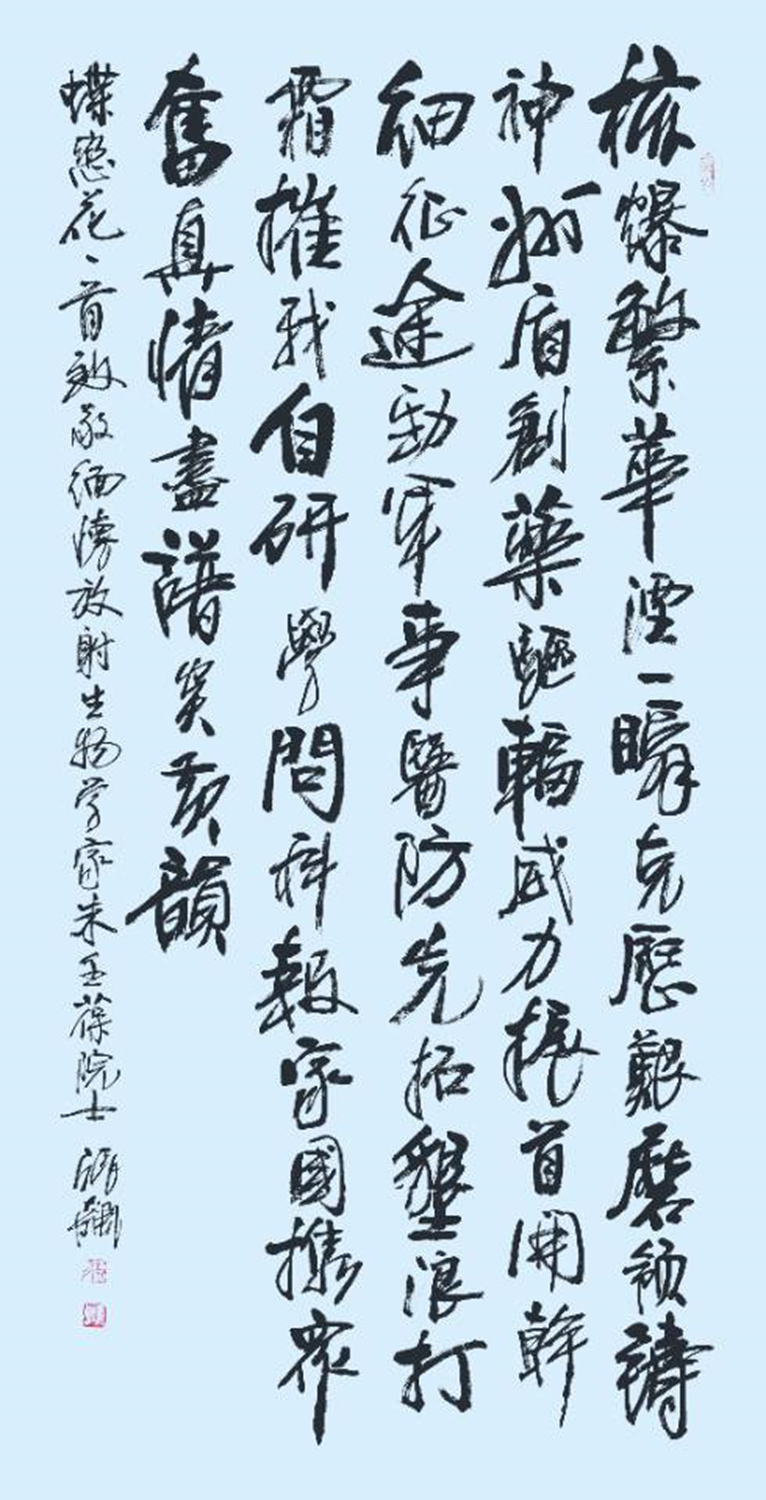 核爆繁華湮一瞬克歷艱磨領鑄
神州盾創藥驅輻威力振首開幹
細征途勁軍事醫防先拓墾浪打
霜摧我自研學問科報家國攜眾
奮真情盡譜炎黃韻
蝶戀花一首致敬緬懷放射生物学家朱壬葆院士